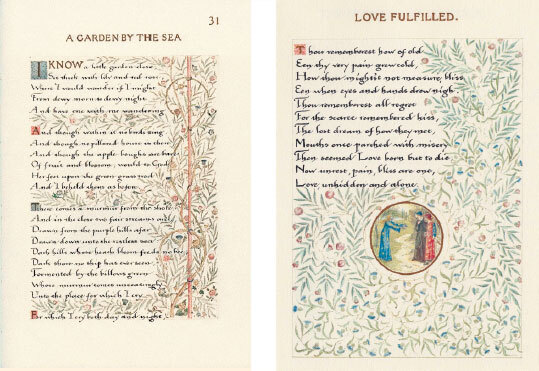 31
A GARDEN BY THE SEA
I KNOW a little garden close
Set thick with lily and red rose,
Where I would wander if I might
From dewy morn to dewy night,
And have one with me wandering
And though within it no birds sing
And though no pillared house is there
And though the apple boughs are bare
Of fruit and blossom, would to God
Her feet upon the green grass trod
And I beheld them as before
There comes a murmur from the shore
And in the close two fair streams are
Drawn from the purple hills afar
Drawn down unto the restless sea
Dark hills whose heath bloom feeds no bee
Dark shore no ship has ever seen
Tormented by the billows green
Whose murmur comes unceasingly
Unto the place for which I cry
For which I cry both day and night,
LOVE FULFILLED.
Thou rememberest how of old
Een thy very pain grew cold,
How thou might'st not measure bliss
Een when eyes and hands drew nigh.
Thou rememberest all regret
For the scarce remembered kiss,
The lost dream of how they met,
Mouths once parched with misery
Then seemed Love born but to die
Now unrest, pain, bliss are one,
Love unhidden and alone